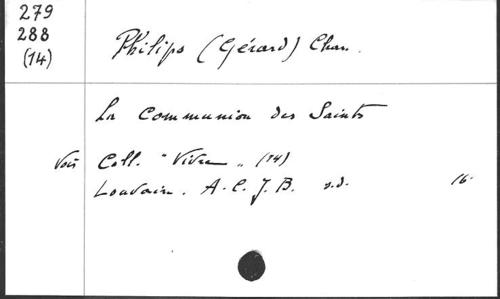 279
288
(14)
Philips (Gérard) Chan.
La Communion des Saints
Voir Coll. "Vivre" (14)
Louvain. A.C.J.B. s.d. 16.